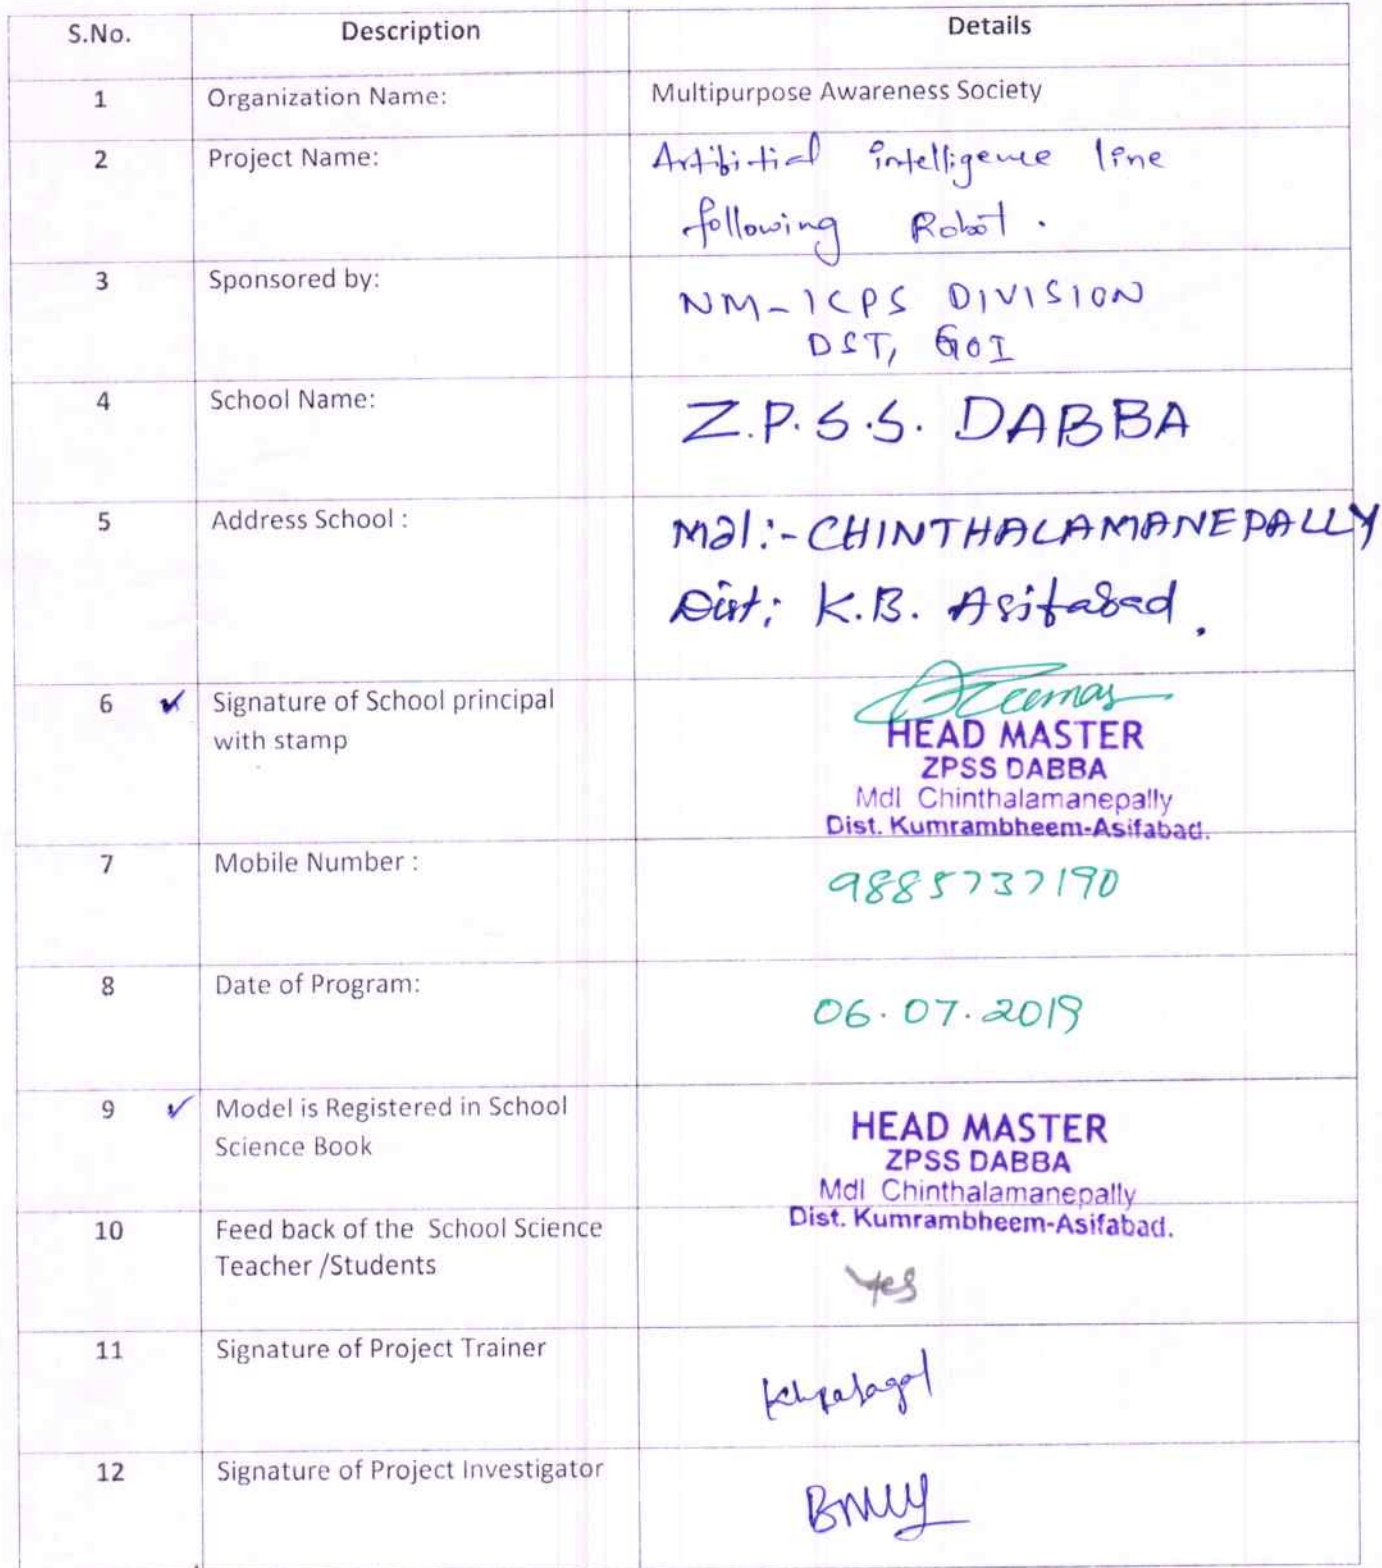 S.No. Description Details
1 Organization Name: Multipurpose Awareness Society
2 Project Name: Artifitial intelligence line
following Robot.
3 Sponsored by: NM-ICPS DIVISION
DST, GOI
4 School Name: Z.P.S.S. DABBA
5 Address School : Mdl:- CHINTHALAMANEPALLY
Dist: K.B. Asifabad.
6 ✔ Signature of School principal
with stamp
HEAD MASTER
ZPSS DABBA
Mdl Chinthalamanepally
Dist. Kumrambheem-Asifabad.
7 Mobile Number : 9885737190
8 Date of Program: 06.07.2019
9 ✓ Model is Registered in School
Science Book
HEAD MASTER
ZPSS DABBA
Mdl Chinthalamanepally
Dist. Kumrambheem-Asifabad.
10 Feed back of the School Science
Teacher /Students
Yes
11 Signature of Project Trainer
12 Signature of Project Investigator